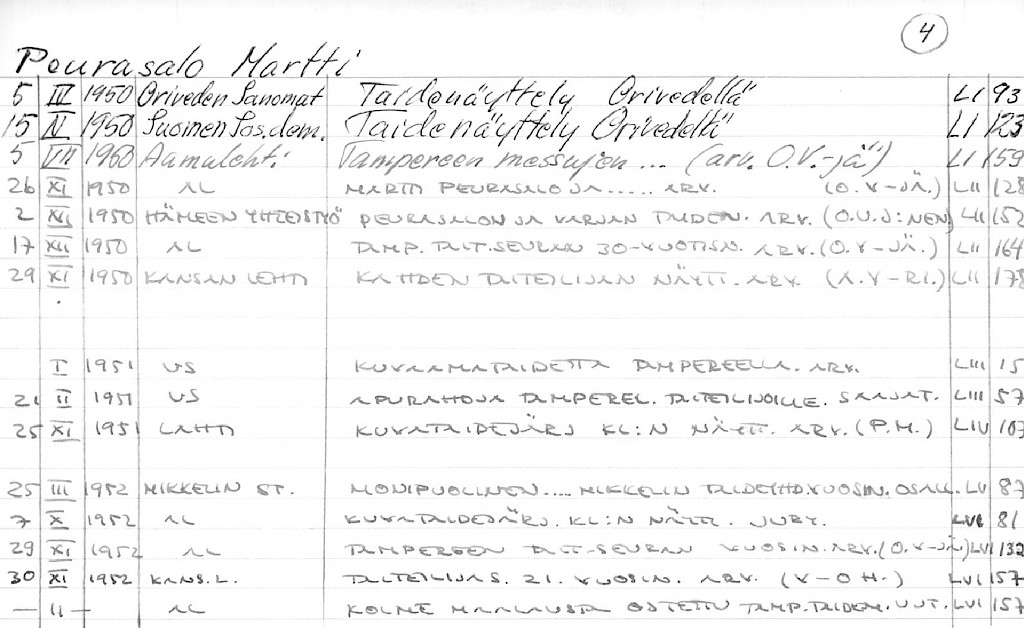 4
Peurasalo Martti
5 IV 1950 Oriveden Sanomat Taidenäyttely Orivedellä LI 93
15 V 1950 Suomen Sos.dem. Taidenäyttely Orivedellä LI 123
5 VII 1950 Aamulehti Tampereen messujen ... (arv. O.V.-jä) LI 159
26 XI 1950 AL MARTTI PEURASALO JA ..... ARV. (O.V-JÄ.) LII 128
2 XII 1950 HÄMEEN YHTEISTYÖ PEURASALON JA VARJAN TAIDEN. ARV. (O.U.J:NEN) LII 152
17 XII 1950 AL TAMP. TAIT.SEURAN 30-VUOTISN. ARV. (O.V-JÄ.) LII 164
29 XI 1950 KANSAN LEHTI KAHDEN TAITEILIJAN NÄYTT. ARV. (A.V-RI.) LII 178
I 1951 US KUVAAMATAIDETTA TAMPEREELLA. ARV. LIII 15
21 II 1951 US APURAHOJA TAMPEREL. TAITEILIJOILLE. SAAJAT. LIII 57
25 XI 1951 LAHTI KUVATAIDEJÄRJ KL:N NÄYTT. ARV. (P.M.) LIV 107
25 III 1952 MIKKELIN ST. MONIPUOLINEN .... MIKKELIN TAIDEYHD.VUOSIN. OSALL. LV 87
7 X 1952 AL KUVATAIDEJÄRJ. KL:N NÄYTT. JURY. LVI 81
29 XI 1952 AL TAMPEREEN TAIT-SEURAN VUOSIN.ARV. (O.V-JÄ) LVI 132
30 XI 1952 KANS.L. TAITEILIJAS. 21. VUOSIN. ARV. (V-O H.) LVI 157
— II — AL KOLME MAALAUSTA OSTETTU TAMP.TAIDEM. UUT. LVI 157